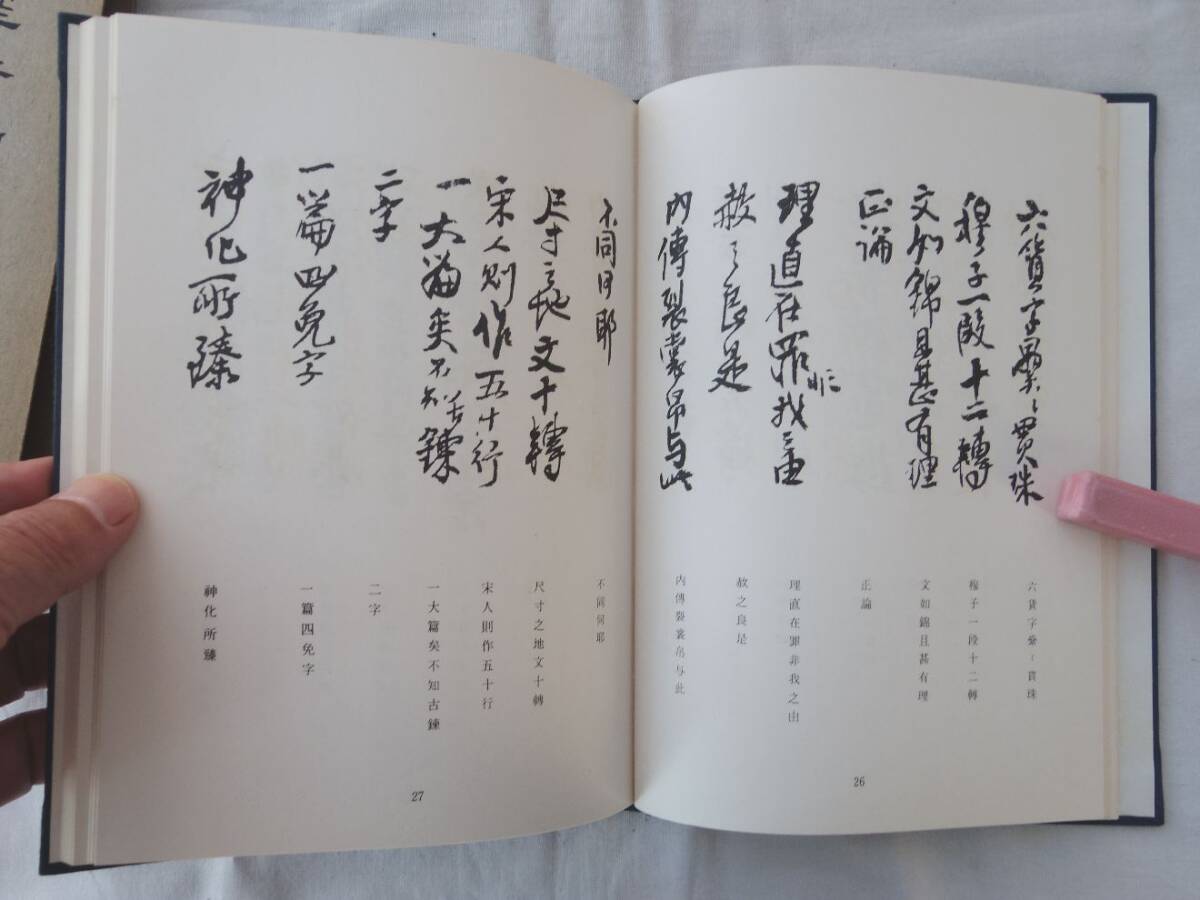 六貨字纍〻貫珠
穆子一段十二轉
文如錦且甚有理
正論
理直在罪非我之由
赦之良是
内傳裂裳帛与此
六貨字纍〻貫珠
穆子一段十二轉
文如錦且甚有理
正論
理直在罪非我之由
赦之良是
内傳裂裳帛与此
26
不同何耶
尺寸之地文十轉
宋人則作五十行
一大篇矣不知古鍊
二字
一篇四免字
神化所臻
不同何耶
尺寸之地文十轉
宋人則作五十行
一大篇矣不知古鍊
二字
一篇四免字
神化所臻
27